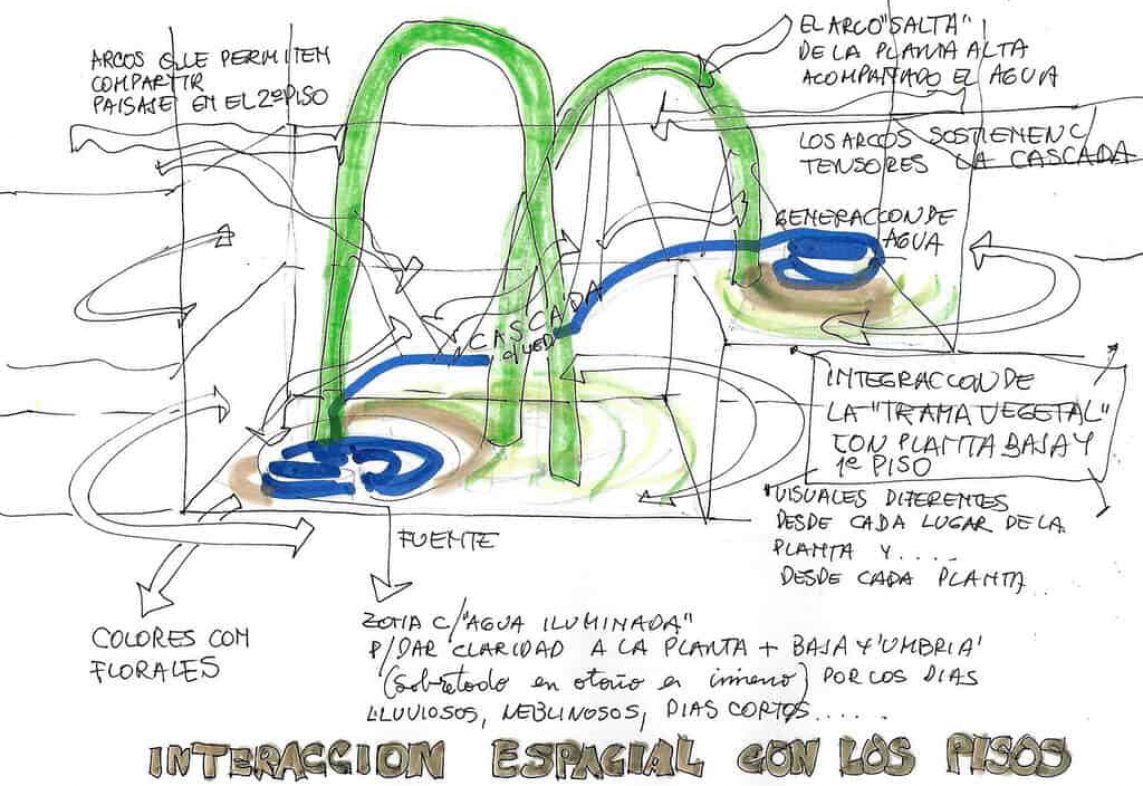 ARCOS QUE PERMITEM
COMPARTIR
PAISAJE EN EL 2º PISO
EL ARCO "SALTA"
DE LA PLANTA ALTA
ACOMPAÑADO EL AGUA
LOS ARCOS SOSTIENEN C/
TENSORES LA CASCADA
GENERACCON DE
AGUA
CASCADA
INTEGRACCON DE
LA "TRAMA VEGETAL"
CON PLANTA BAJA Y
1º PISO
"VISUALES DIFERENTES
DESDE CADA LUGAR DE LA
PLANTA Y.....
DESDE CADA PLANTA
FUENTE
COLORES COM
FLORALES
ZONA C/"AGUA ILUMINADA"
P/DAR CLARIDAD A LA PLANTA + BAJA Y 'UMBRIA'
(sobretodo en otoño e inverno) POR LOS DIAS
LLUVIOSOS, NEBLINOSOS, DIAS CORTOS.....
INTERACCION ESPACIAL CON LOS PISOS